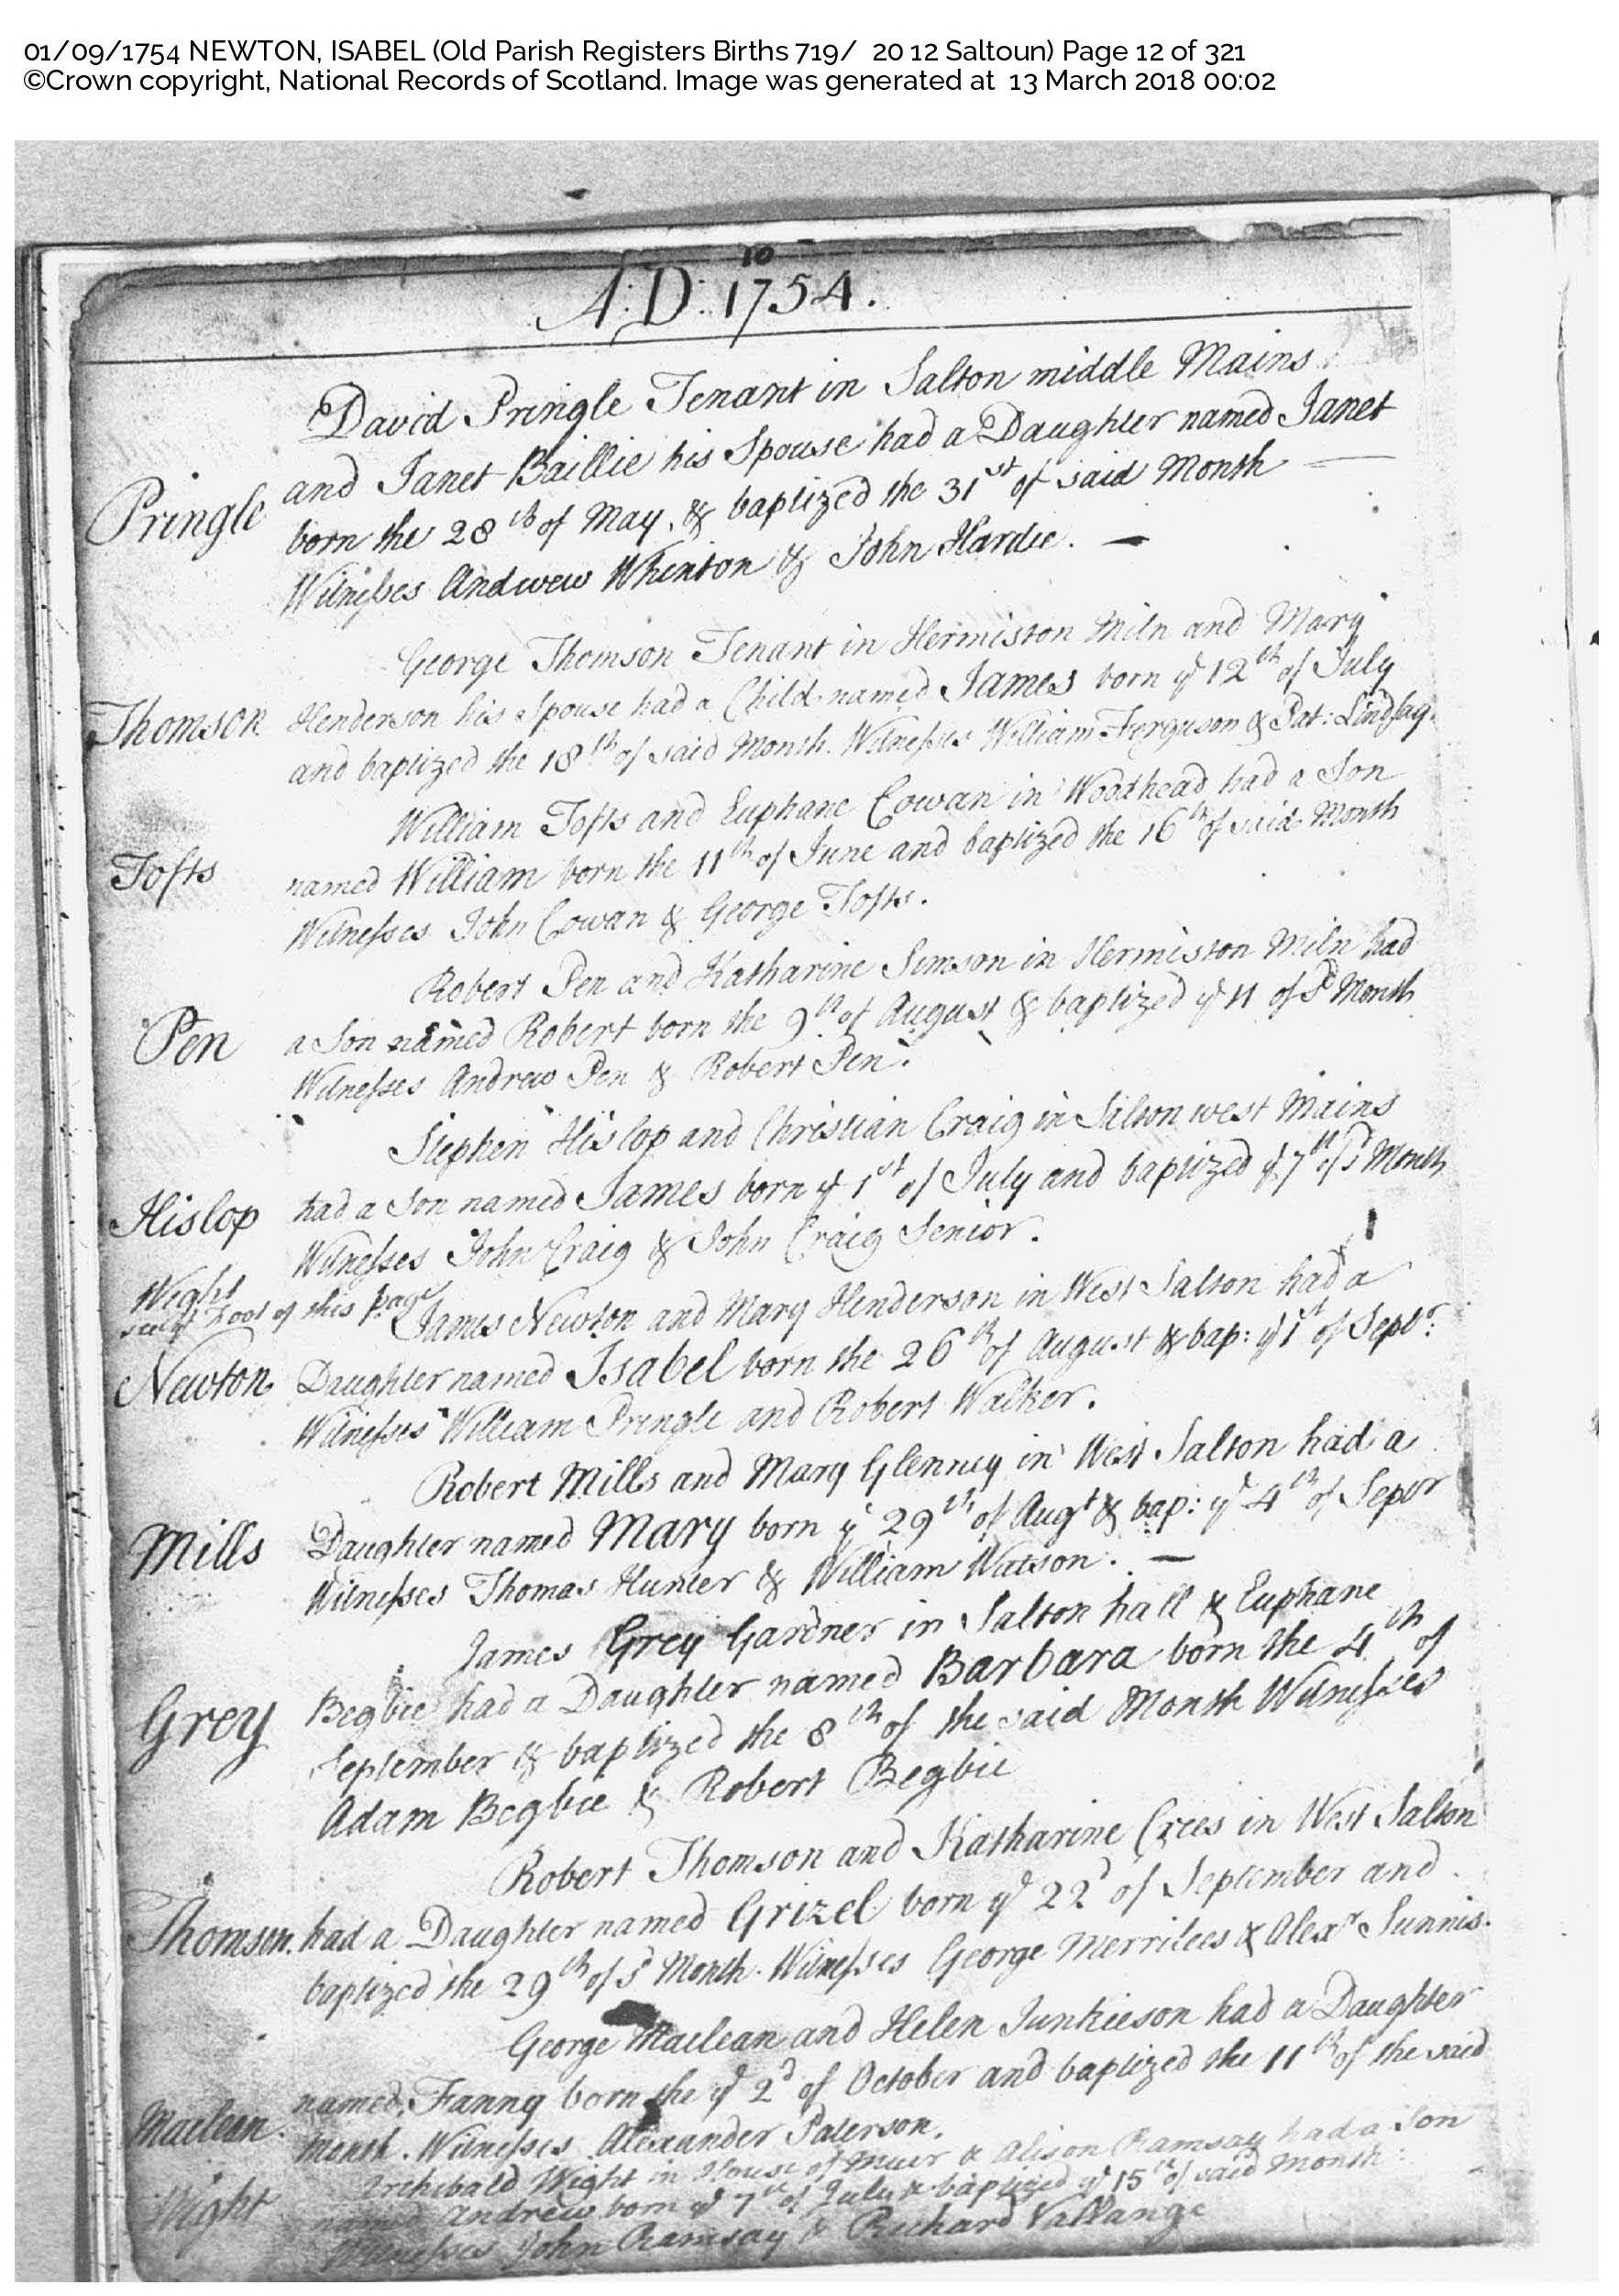 01/09/1754 NEWTON, ISABEL (Old Parish Registers Births 719/ 20 12 Saltoun) Page 12 of 321
©Crown copyright, National Records of Scotland. Image was generated at 13 March 2018 00:02
10
A:D: 1754.
David Pringle Tenant in Salton middle Mains
and Janet Baillie his Spouse had a Daughter named Janet
Pringle
born the 28th of May, & baptized the 31st of said Month
Witnesses Andwew Whinton & John Hardie.
George Thomson Tenant in Hermiston Miln and Mary
Thomson Henderson his Spouse had a Child named James born ye 12th of July
and baptized the 18th of said Month. Witnesses William Ferguson & Pat: Lindsay.
William Tofts and Euphane Cowan in Woodhead had a Son
Tofts named William born the 11th of June and baptized the 16th of said Month
Witnesses John Cowan & George Tofts.
Robert Pen and Katharine Simson in Hermiston Miln had
Pen a Son named Robert born the 9th of August & baptized ye 11 of sd Month
Witnesses Andrew Pen & Robert Pen.
Stephen Hislop and Christian Craig in Salton west Mains
Hislop had a Son named James born ye 1st of July and baptized ye 7th of sd Month
Witnesses John Craig & John Craig Senior.
Wight
foot of this page
James Newton and Mary Henderson in West Salton had a
Newton Daughter named Isabel born the 26th of August & bap: ye 1st of Septr:
Witnesses William Pringle and Robert Walker.
Robert Mills and Mary Glenney in West Salton had a
Mills Daughter named Mary born ye 29th of Augt & bap: ye 4th of Sepbr
Witnesses Thomas Hunter & William Watson.
James Grey Gardner in Salton hall & Euphane
Grey Begbie had a Daughter named Barbara born the 4th of
September & baptized the 8th of the said Month Witnesses
Adam Begbie & Robert Begbie
Robert Thomson and Katharine Crees in West Salton
Thomson. had a Daughter named Grizel born ye 22d of September and
baptized the 29th of sd Month. Witnesses George Merrilees & Alexr Sunnis.
George Maclean and Helen Junkieson had a Daughter
Maclean. named Fanny born the ye 2d of October and baptized the 11th of the said
Month. Witnesses Alexander Paterson.
Archibald Wight in House of Muir & Alison Ramsay had a Son
Wight named Andrew born ye 7th of July & baptized ye 15th of said Month
Witnesses John Ramsay & Richard Vallange